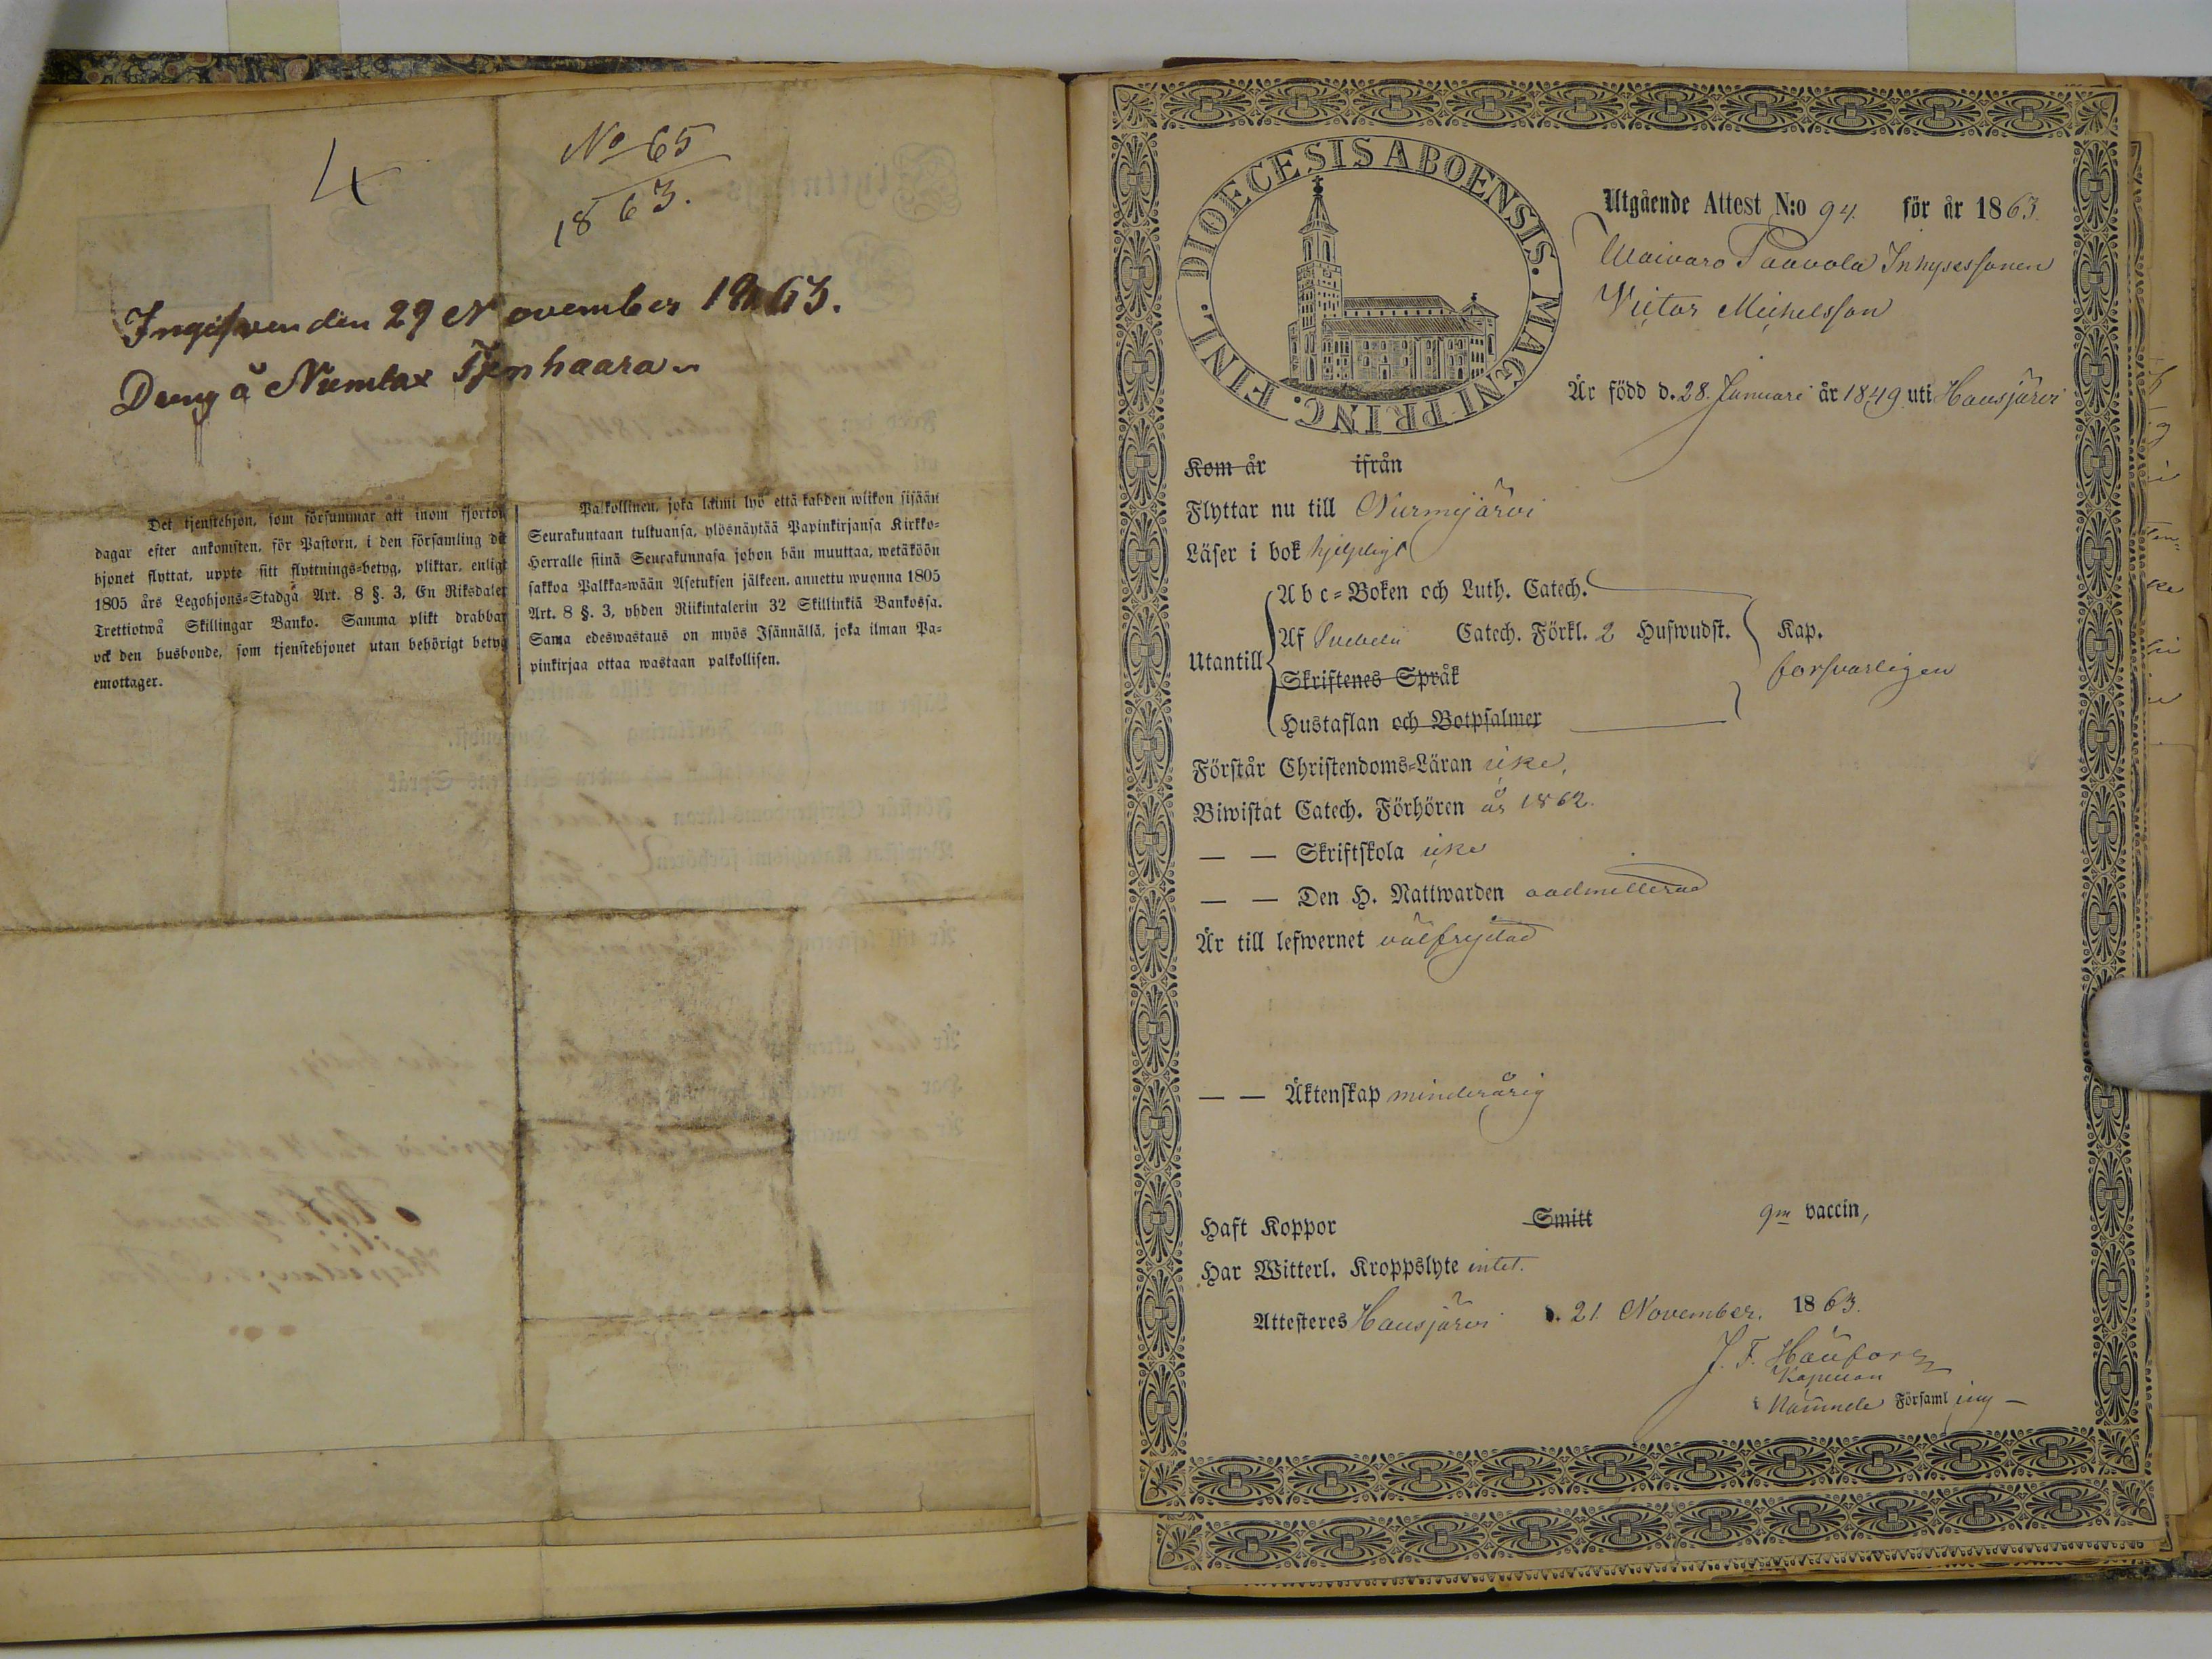 4
No 65
1863.
Ingifven den 29 November 1863.
Dreng å Numlax Tjenhaara
Det tjenstehjon, som försummar att inom fjorton
dagar efter ankomsten, för Pastorn, i den församling dit
hjonet flyttat, uppte sitt flyttnings-betyg, pliktar, enligt
1805 års Legohjons-Stadga Art. 8 §. 3, En Riksdaler
Trettiotwå Skillingar Banko. Samma plikt drabbar
ock den husbonde, som tjenstehjonet utan behörigt betyg
emottager.
Palkollinen, joka laimi lyö että kahden wiikon sisään
Seurakuntaan tultuansa, ylösnäytää Papinkirjansa Kirkko-
Herralle siinä Seurakunnasa johon hän muuttaa, wetäköön
sakkoa Palkka-wään Asetuksen jälkeen, annettu wuonna 1805
Art. 8 §. 3, yhden Riikintalerin 32 Skillinkiä Bankossa.
Sama edeswastaus on myös Isännällä, joka ilman Pa-
pinkirjaa ottaa wastaan palkollisen.
DIOECESIS ABOENSIS. MAGNI PRINC. FINL.
Utgående Attest N:o 94. för år 1863.
Waivaro Paavola Inhysessonen
Victor Michelsson
Är född d. 28. Januari år 1849 uti Hausjärvi
Kom år ifrån
Flyttar nu till Nurmijärvi
Läser i bok hjelpligt
Utantill
Abc-Boken och Luth. Catech.
Af Svebelii Catech. Förkl. 2 Hufwudst. Kap.
Skriftenes Språk försvarligen
Hustaflan och Botpsalmer
Förstår Christendoms-Läran icke.
Biwistat Catech. Förhören år 1862.
— — Skriftskola icke
— — Den H. Nattwarden oadmitterad
Är till lefwernet välfrejdad
— — Äktenskap minderårig
Haft Koppor Smitt gm vaccin,
Har Witterl. Kroppslyte intet.
Attesteres Hausjärvi d. 21. November. 1863.
J. F.
Kapellan
i nämnde Församling —